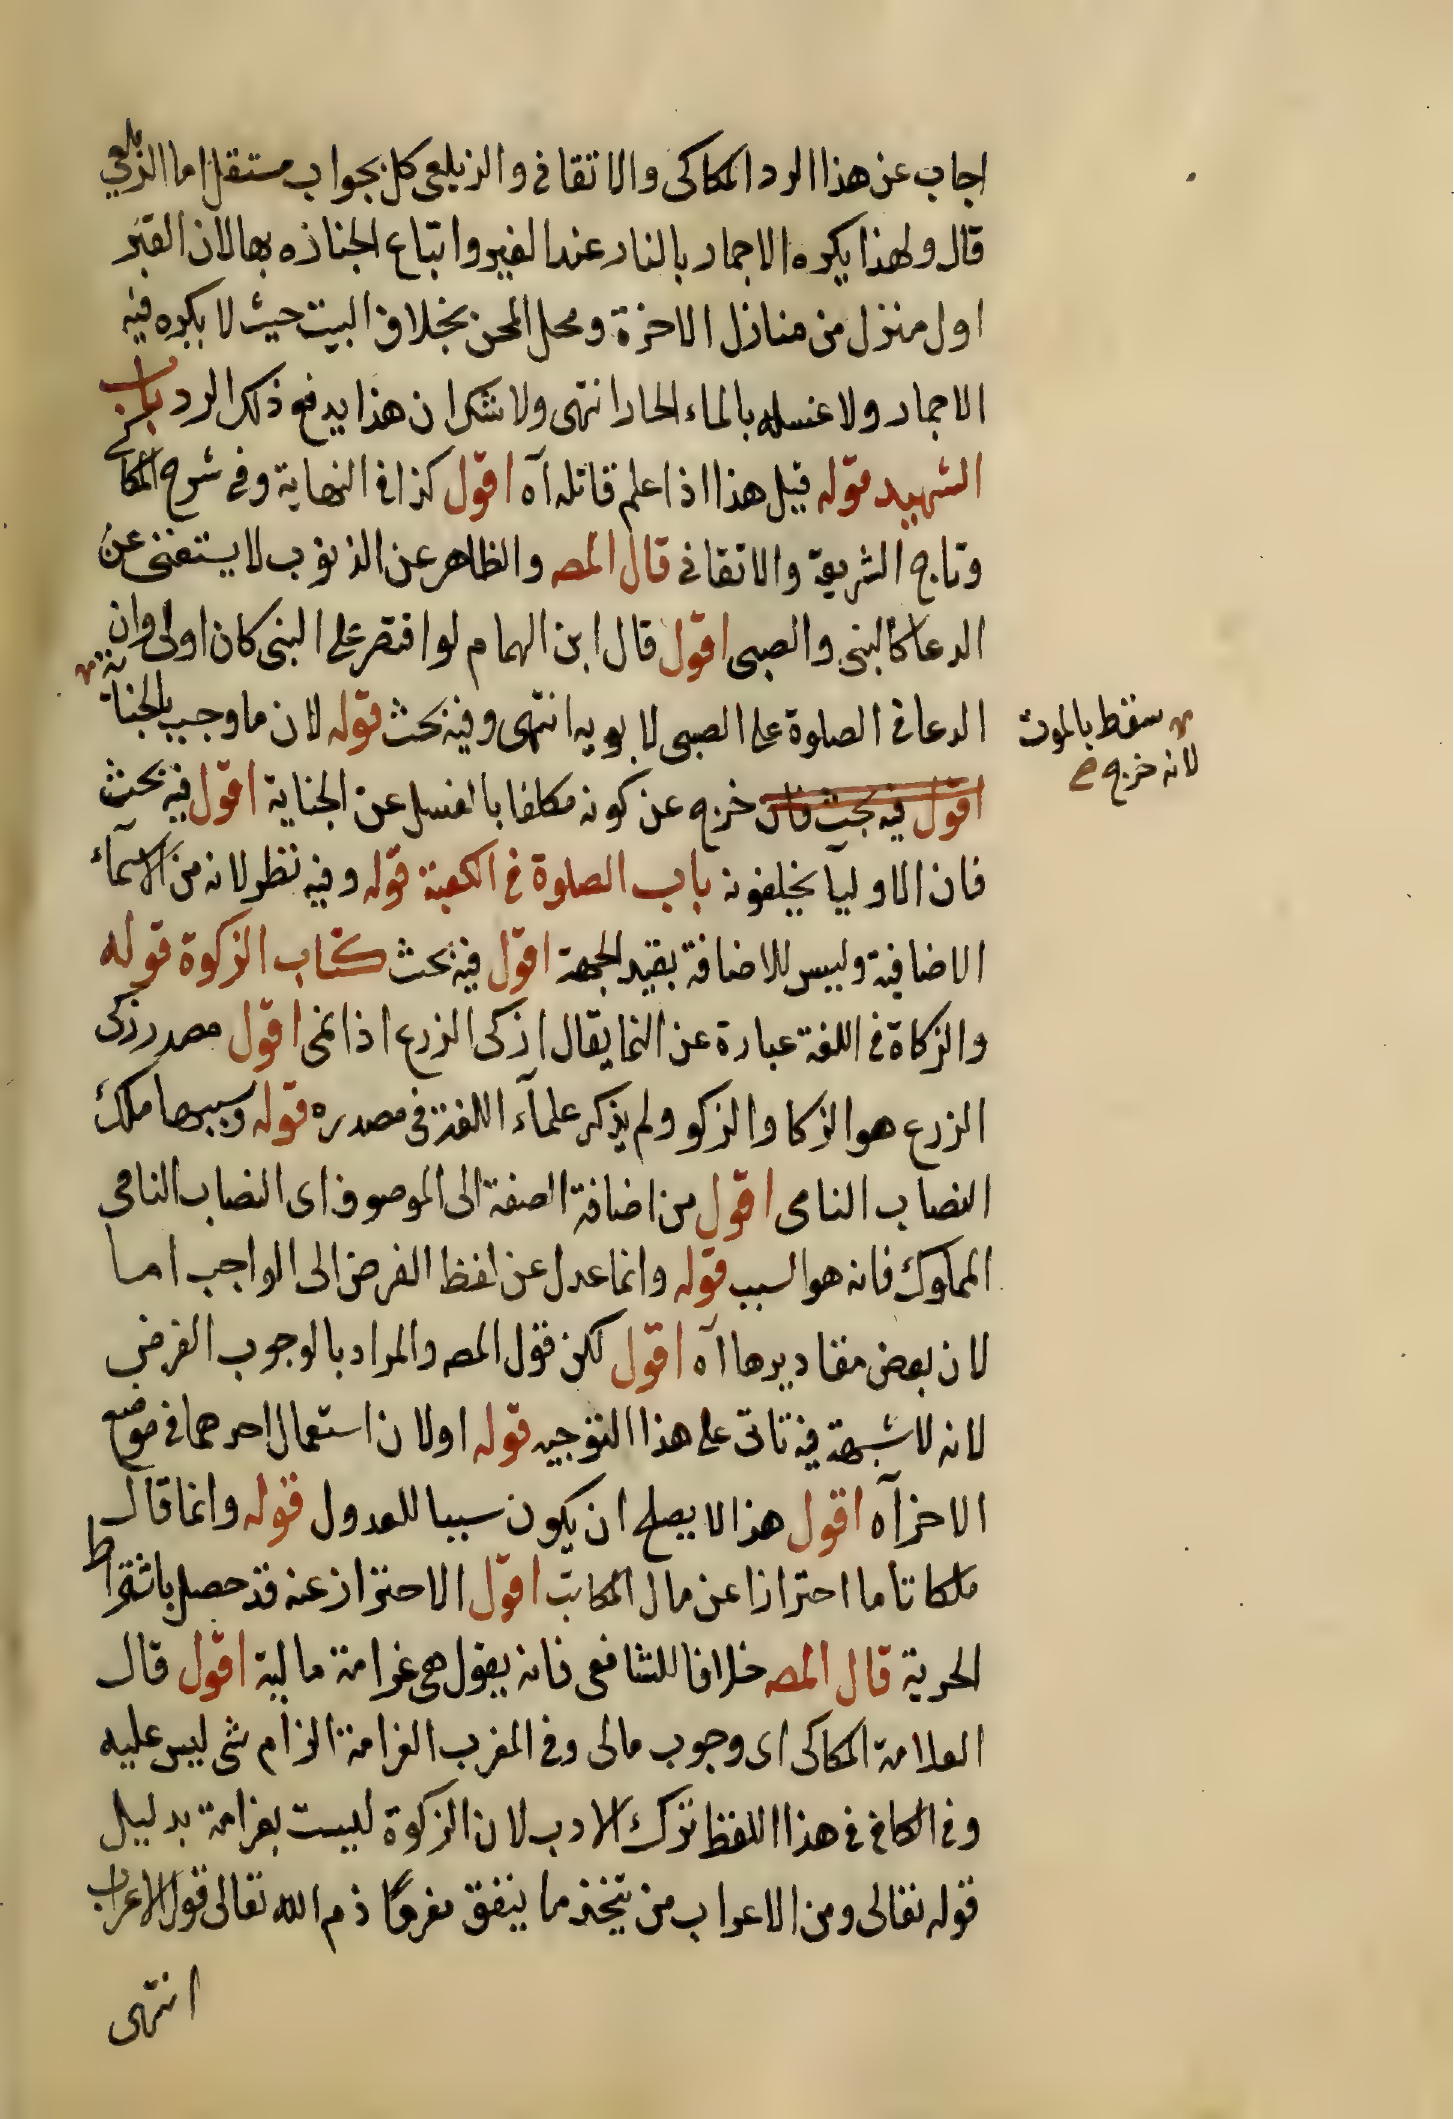 اجاب عن هذا الرد الكاكى والاتقانى والزيلعى كل بجواب مستقل اما الزيلعي
قال ولهذا يكره الاجمار بالنار عند القبر واتباع الجنازه بها لان القبر
اول منزل من منازل الاخرة ومحل المحن بخلاف البيت حيث لا يكره فيه
الاجمار ولا غسله بالماء الحار انتهى ولا شك ان هذا يدفع ذلك الرد باب
الشهيد قوله قيل هذا اذا علم قاتله آه اقول كذا فى النهاية وفى شرح الكاكى
وتاج الشريعة والاتقانى قال المصـ والطاهر عن الذنوب لا يستغنى عن
الدعا كالنبى والصبى اقول قال ابن الهمام لو اقتصر على النبى كان اولى وان
الدعا فى الصلوة على الصبى لابويه انتهى وفيه بحث قوله لان ما وجب بالجناية
سقط بالموت
لانه خرج صح
اقول فيه بحث فان خرج عن كونه مكلفا بالغسل عن الجناية اقول فيه بحث
فان الاوليا يخلفونه باب الصلوة فى الكعبة قوله وفيه نظر لانه من الاسمآء
الاضافية وليس للاضافة بقيد الجهة اقول فيه بحث كتاب الزكوة قوله
والزكاة فى اللغة عبارة عن النما يقال ازكى الزرع اذا نمى اقول مصدر زكى
الزرع هو الزكا والزكو ولم يذكر علمآء اللغة فى مصدره قوله وسببها ملك
النصاب النامى اقول من اضافة الصفة الى الموصوف اى النصاب النامى
المملوك فانه هو السبب قوله وانما عدل عن لفظ الفرض الى الواجب اما
لان بعض مقاديرها آه اقول لكن قول المصـ والمراد بالوجوب الفرض
لانه لا شبهة فيه تاتى على هذا التوجيه قوله اولان استعمال احدهما فى موضع
الاخر آه اقول هذا لا يصلح ان يكون سببا للعدول قوله وانما قال
ملكا تاما احترازا عن مال المكاتب اقول الاحتراز عنه قد حصل باشتراط
الحرية قال المصـ خلافا للشافعى فانه يقول هى غرامة مالية اقول قال
العلامة الكاكى اى وجوب مالى وفى المغرب الغرامة الزام شى ليس عليه
وفى الكافى فى هذا اللفظ ترك الادب لان الزكوة ليست بغرامة بدليل
قوله تعالى ومن الاعراب من يتخذ ما ينفق مغرما ذم الله تعالى قول الاعراب
انتهى